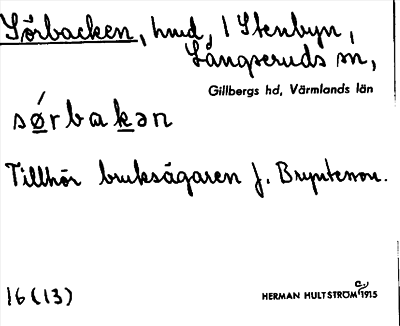 Sörbacken, hmd, 1 Stenbyn,
Långseruds sn,
Gillbergs hd, Värmlands län
sørbakən
Tillhör bruksägaren J. Bryntesson.
16 (13)
HERMAN HULTSTRÖM c. 1915